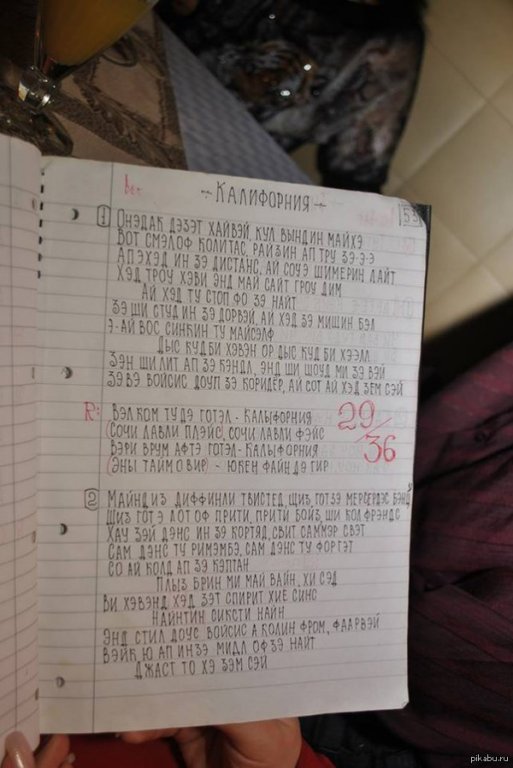 Вм
→ КАЛИФОРНИЯ →
53
1 ОНЭДАК ДЭЗЭТ ХАЙВЭЙ, КУЛ ВЫНДИН МАЙХЭ
ВОТ СМЭЛОФ КОЛИТАС, РАЙЗИН АП ТРУ ЗЭ-Э-Э
АПЭХЭД ИН ЗЭ ДИСТАНС, АЙ СОУЭ ШИМЕРИН ЛАЙТ
ХЭД ГРОУ ХЭВИ ЭНД МАЙ САЙТ ГРОУ ДИМ
АЙ ХЭД ТУ СТОП ФО ЗЭ НАЙТ
ЗЭ ШИ СТУД ИН ЗЭ ДОРВЭЙ, АЙ ХЭД ЗЭ МИШИН БЭЛ
Э-АЙ ВОС СИНКИН ТУ МАЙСЭЛФ
ДЫС КУД БИ ХЭВЭН ОР ДЫС КУД БИ ХЭЭЛЛ
ЗЭН ШИ ЛИТ АП ЗЭ КЭНДЛ, ЭНД ШИ ШОУД МИ ЗЭ ВЭЙ
ЗЭ ВЭ ВОЙСИС ДОУП ЗЭ КОРИДЁР, АЙ СОТ АЙ ХЭД ЗЕМ СЭЙ
R: ВЭЛКОМ ТУ ДЭ ГОТЭЛ - КАЛЫФОРНИЯ
(СОЧИ ЛАВЛИ ПЛЭЙС), СОЧИ ЛАВЛИ ФЭЙС
ВЭРИ ВРУМ АФТЭ ГОТЭЛ - КАЛЫФОРНИЯ
(ЭНЫ ТАЙМ О ВИР) - ЮКЕН ФАЙН ДЭ ГИР
29/36
2 МАЙНД ИЗ ДИФФИНЛИ ТВИСТЕД, ЩИЗ ГОТ ЗЭ МЕРСЕРДЭС БЭНЦ
ШИЗ ГОТ Э ЛОТ ОФ ПРИТИ, ПРИТИ БОЙЗ, ШИ КОЛ ФРЭНДС
ХАУ ЗЭЙ ДЭНС ИН ЗЭ КОРТЯД, СВИТ САММЭР СВЭТ
САМ ДЭНС ТУ РИМЭМБЭ, САМ ДЭНС ТУ ФОРГЕТ
СО АЙ КОЛД АП ЗЭ КЭПТАН
ПЛЫЗ БРИН МИ МАЙ ВАЙН, ХИ СЭД
ВИ ХЭВЭНД ХЭД ЗЭТ СПИРИТ ХИЕ СИНС
НАЙНТИН СИКСТИ НАЙН
ЭНД СТИЛ ДОУС ВОЙСИС А КОЛИН ФРОМ, ФААРВЭЙ
ВЭЙК, Ю АП ИН ЗЭ МИДЛ ОФ ЗЭ НАЙТ
ДЖАСТ ТО ХЭ ЗЭМ СЭЙ
pikabu.ru